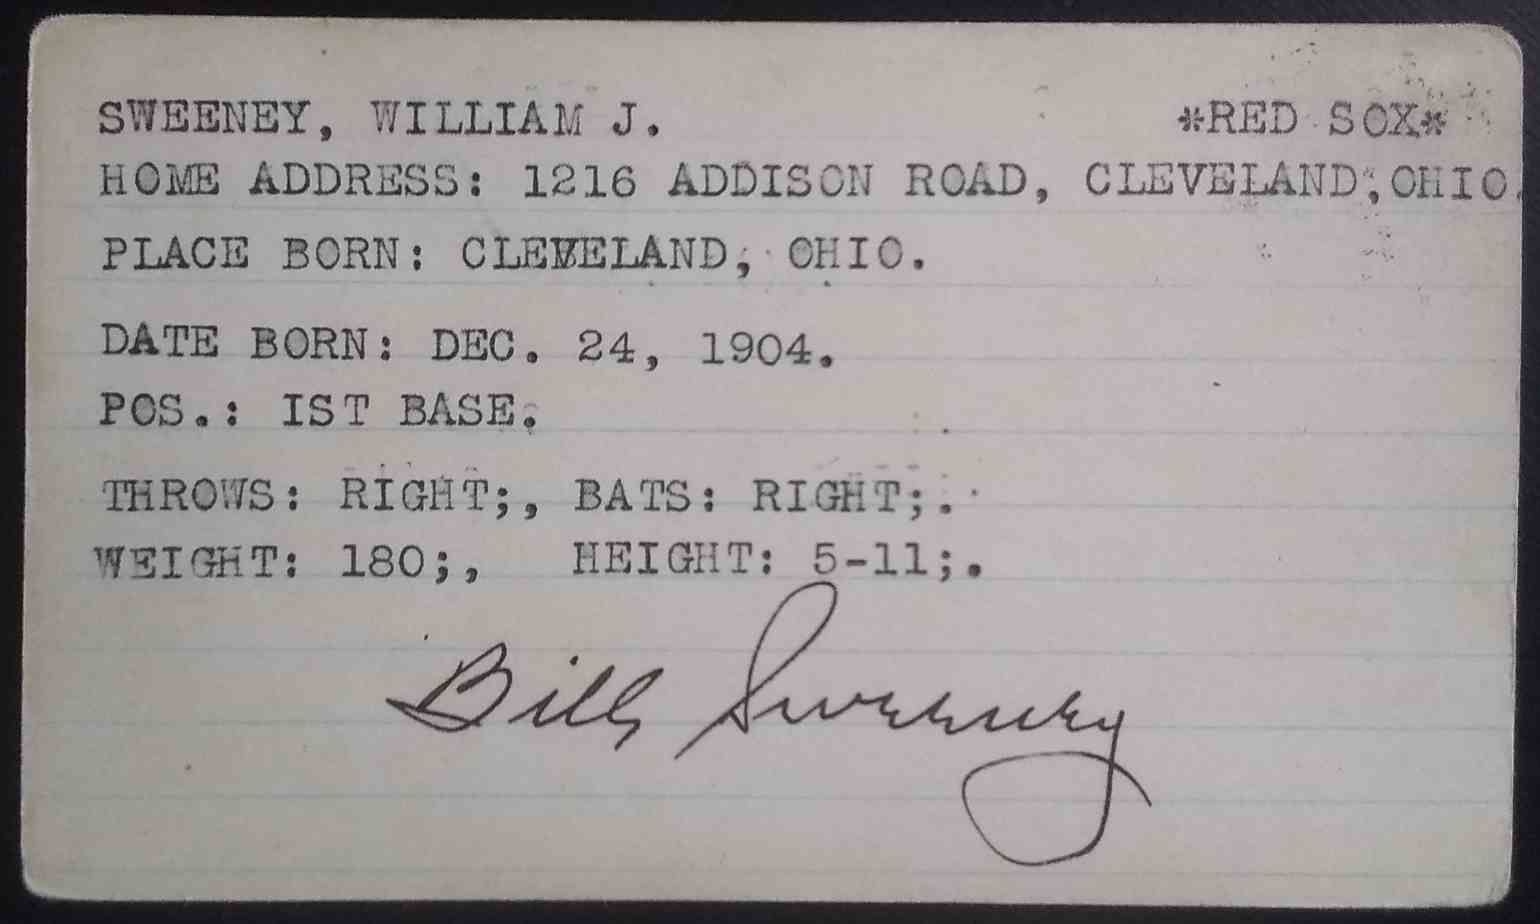 SWEENEY, WILLIAM J. *RED SOX*
HOME ADDRESS: 1216 ADDISON ROAD, CLEVELAND,OHIO.
PLACE BORN: CLEVELAND, OHIO.
DATE BORN: DEC. 24, 1904.
POS.: IST BASE.
THROWS: RIGHT;, BATS: RIGHT;.
WEIGHT: 180;, HEIGHT: 5-11;.
Bill Sweeney